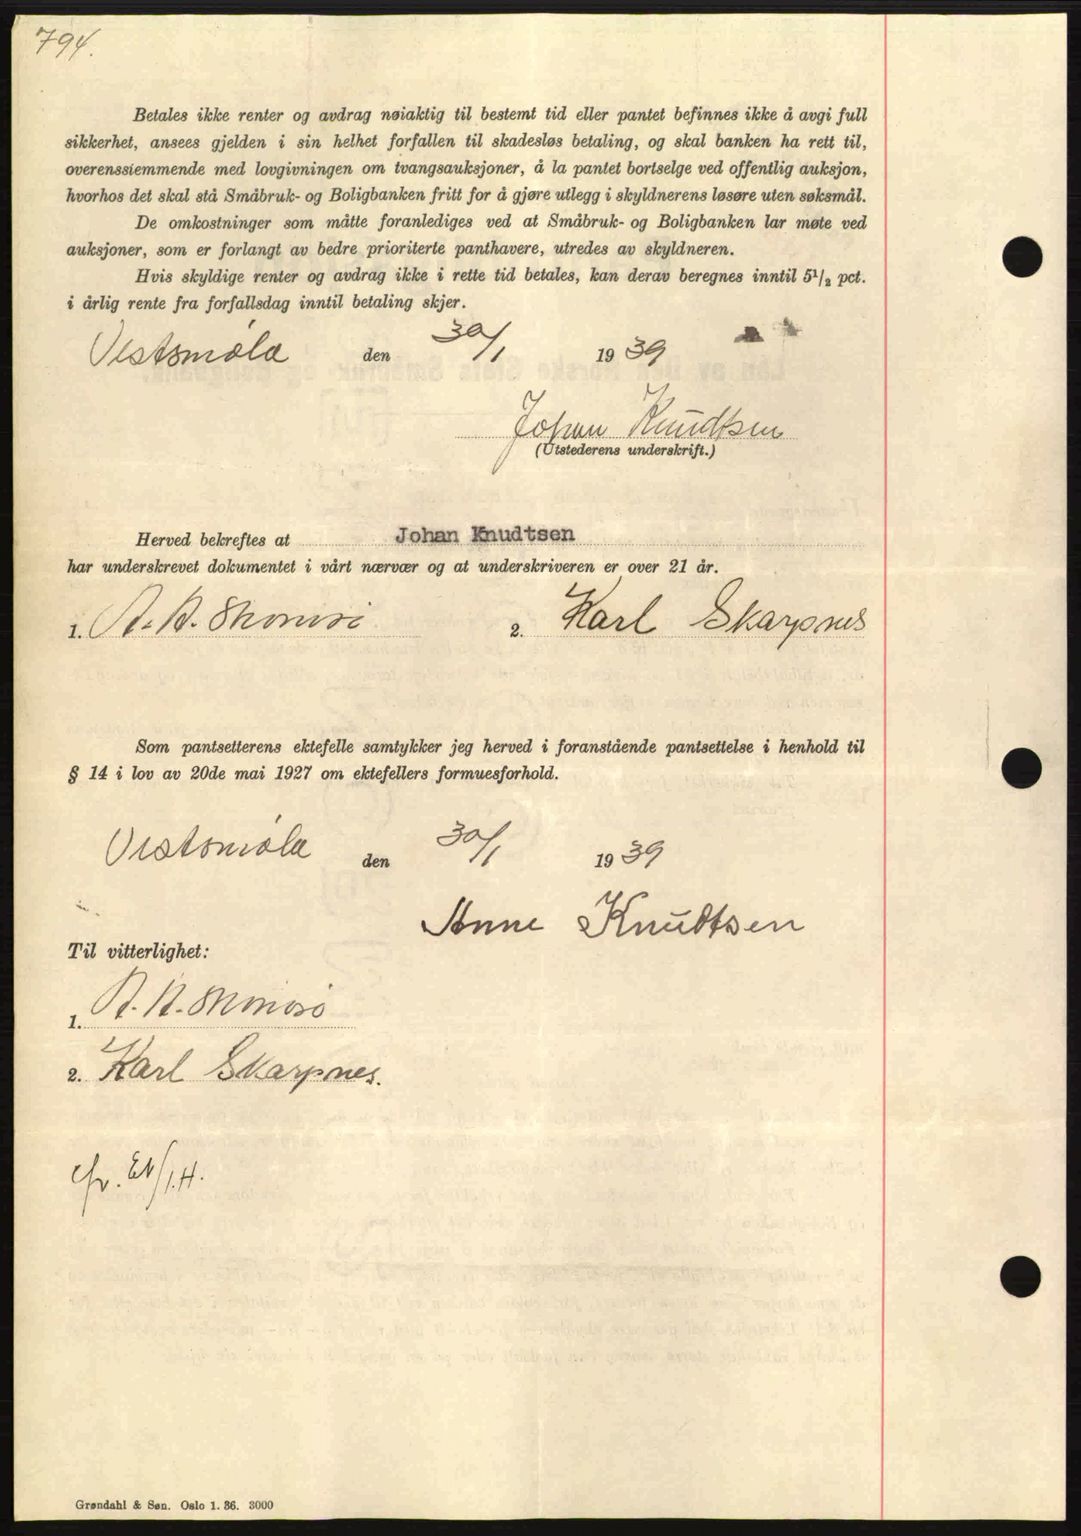 794.
Betales ikke renter og avdrag nøiaktig til bestemt tid eller pantet befinnes ikke å avgi full
sikkerhet, ansees gjelden i sin helhet forfallen til skadesløs betaling, og skal banken ha rett til,
overenssiemmende med lovgivningen om tvangsauksjoner, å la pantet bortselge ved offentlig auksjon,
hvorhos det skal stå Småbruk- og Boligbanken fritt for å gjøre utlegg i skyldnerens løsøre uten søksmål.
De omkostninger som måtte foranlediges ved at Småbruk- og Boligbanken lar møte ved
auksjoner, som er forlangt av bedre prioriterte panthavere, utredes av skyldneren.
Hvis skyldige renter og avdrag ikke i rette tid betales, kan derav beregnes inntil 5 1/2 pct.
i årlig rente fra forfallsdag inntil betaling skjer.
Vestsmøla den 30/1 1939
Johan Knudtsen
(Utstederens underskrift.)
Herved bekreftes at Johan Knudtsen
har underskrevet dokumentet i vårt nærvær og at underskriveren er over 21 år.
1. A. A. 2. Karl Skarpnes
Som pantsetterens ektefelle samtykker jeg herved i foranstående pantsettelse i henhold til
§ 14 i lov av 20de mai 1927 om ektefellers formuesforhold.
Vestsmøla den 30/1 1939
Anne Knudtsen
Til vitterlighet:
1. A. A.
2. Karl Skarpnes.
Grøndahl & Søn. Oslo 1. 36. 3000